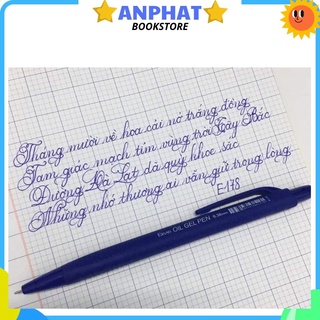 ANPHAT
BOOKSTORE
Tháng mười về hoa cải nở trắng đồng
Tam giác mạch tím vùng trời Tây Bắc
Đường Đà Lạt dã quỳ khoe sắc
Những nhớ thương ai vẫn giữ trong lòng
E-178
OIL GEL PEN